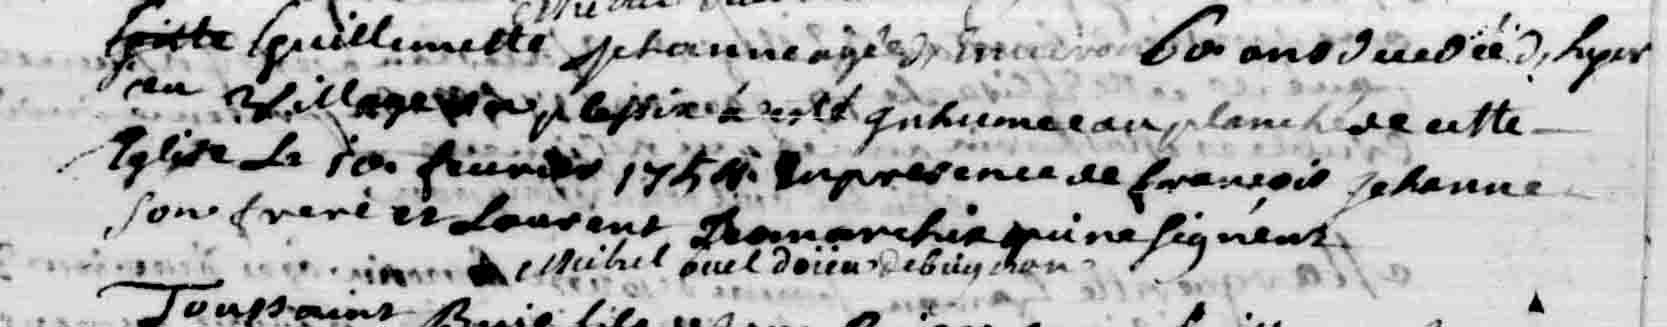 Guillemette Jehanne agée d'environ 60 ans decedée d'hyer
au Village du plessix à esté Inhumée au planché de cette
Eglise Le 10. fevrier 1754. En presence de françois Jehanne
son frere et Laurent Demarchix qui ne signent
Michel ruel doien debuy
Toussaint